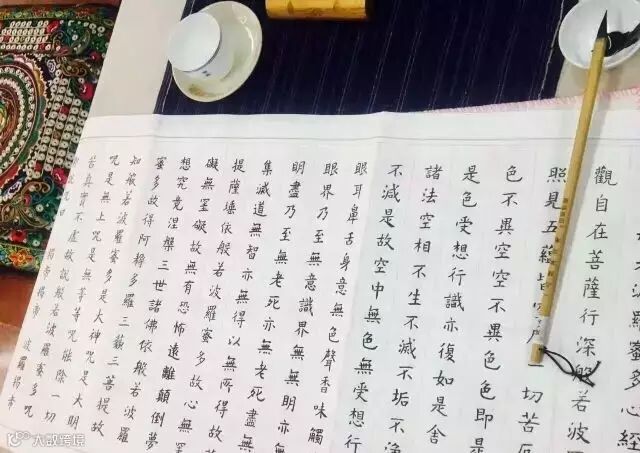 多心經
觀自在菩薩行深般若波
照見五蘊皆 一切苦厄
色不異空空不異色色即是
是色受想行識亦復如是舍
諸法空相不生不滅不垢不淨
不減是故空中無色無受想行
眼耳鼻舌身意無色聲香味觸
眼界乃至無意識界無無明亦無
明盡乃至無老死亦無老死盡無
集滅道無智亦無得以無所得故
提薩埵依般若波羅蜜多故心無罣
礙無罣礙故無有恐怖遠離顛倒夢
想究竟涅槃三世諸佛依般若波羅
蜜多故得阿耨多羅三藐三菩提故
知般若波羅蜜多是大神咒是大明
咒是無上咒是無等等咒能除一切
苦真實不虛故說般若波羅蜜多咒
說咒曰 揭帝揭帝 波羅揭帝
大数跨境